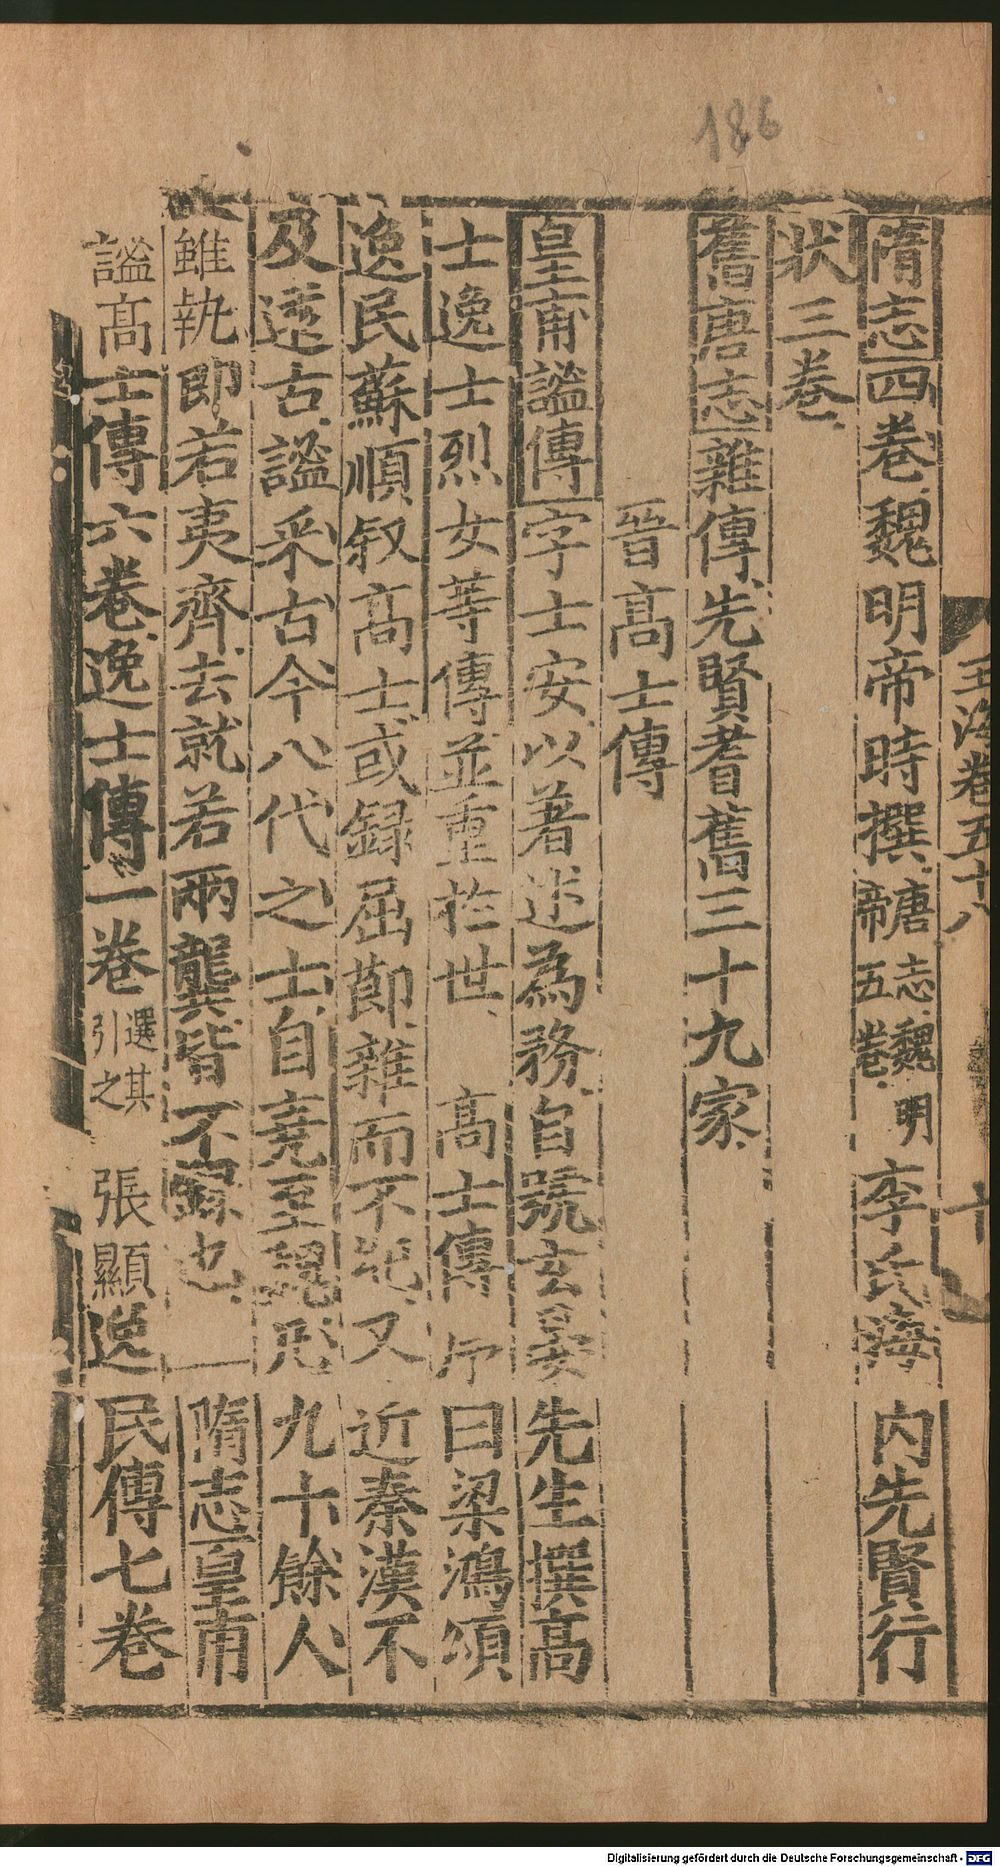 186
玉海卷五十八 十
隋志四卷魏明帝時撰唐志魏明帝五卷李氏海内先賢行
狀三卷
舊唐志雜傳先賢耆舊三十九家
晉高士傳
皇甫謐傳字士安以著述為務自號玄晏先生撰高
士逸士烈女等傳並重於世 高士傳序曰梁鴻頌
逸民蘇順叙高士或録屈節雜而不純又近秦漢不
及遠古謐采古今八代之士自堯至魏九十餘人
雖執節若夷齊去就若兩龔皆不録也 隋志皇甫
謐高士傳六卷逸士傳一卷選其引之 張顯逸民傳七卷
Digitalisierung gefördert durch die Deutsche Forschungsgemeinschaft - DFG